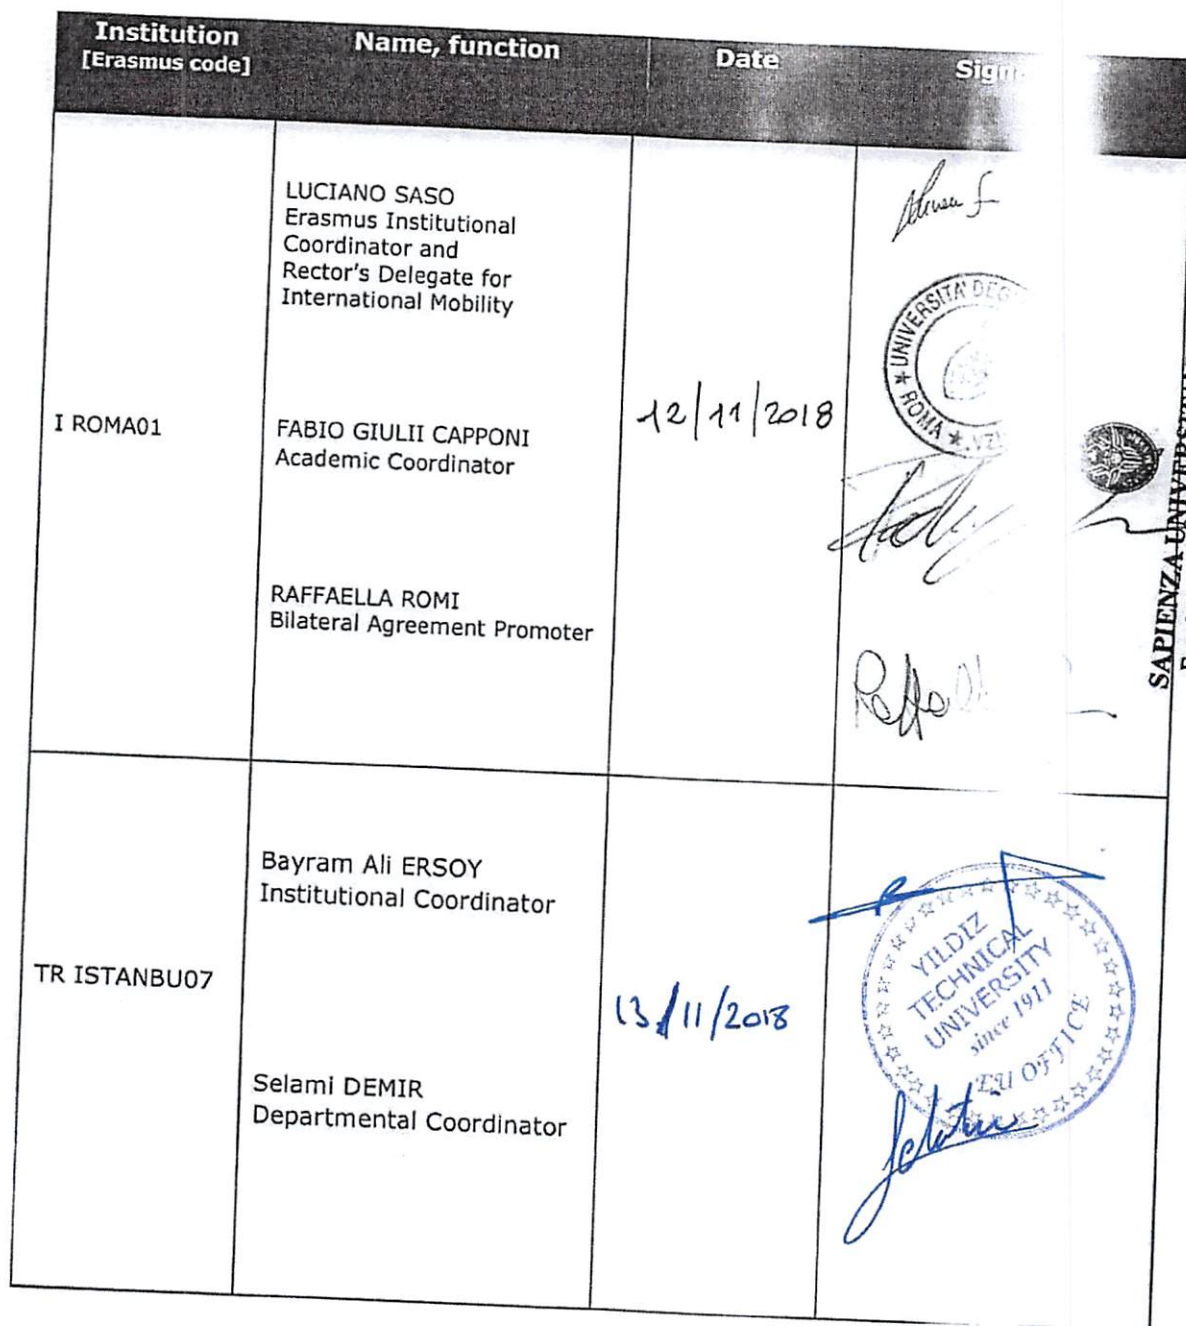 Institution
[Erasmus code]
Name, function
Date
Sign
I ROMA01
LUCIANO SASO
Erasmus Institutional
Coordinator and
Rector's Delegate for
International Mobility
FABIO GIULII CAPPONI
Academic Coordinator
RAFFAELLA ROMI
Bilateral Agreement Promoter
12/11/2018
★ UNIVERSITA' DEG
ROMA ★
SAPIENZA UNIVERSITY
TR ISTANBU07
Bayram Ali ERSOY
Institutional Coordinator
Selami DEMIR
Departmental Coordinator
13/11/2018
YILDIZ
TECHNICAL
UNIVERSITY
since 1911
EU OFFICE